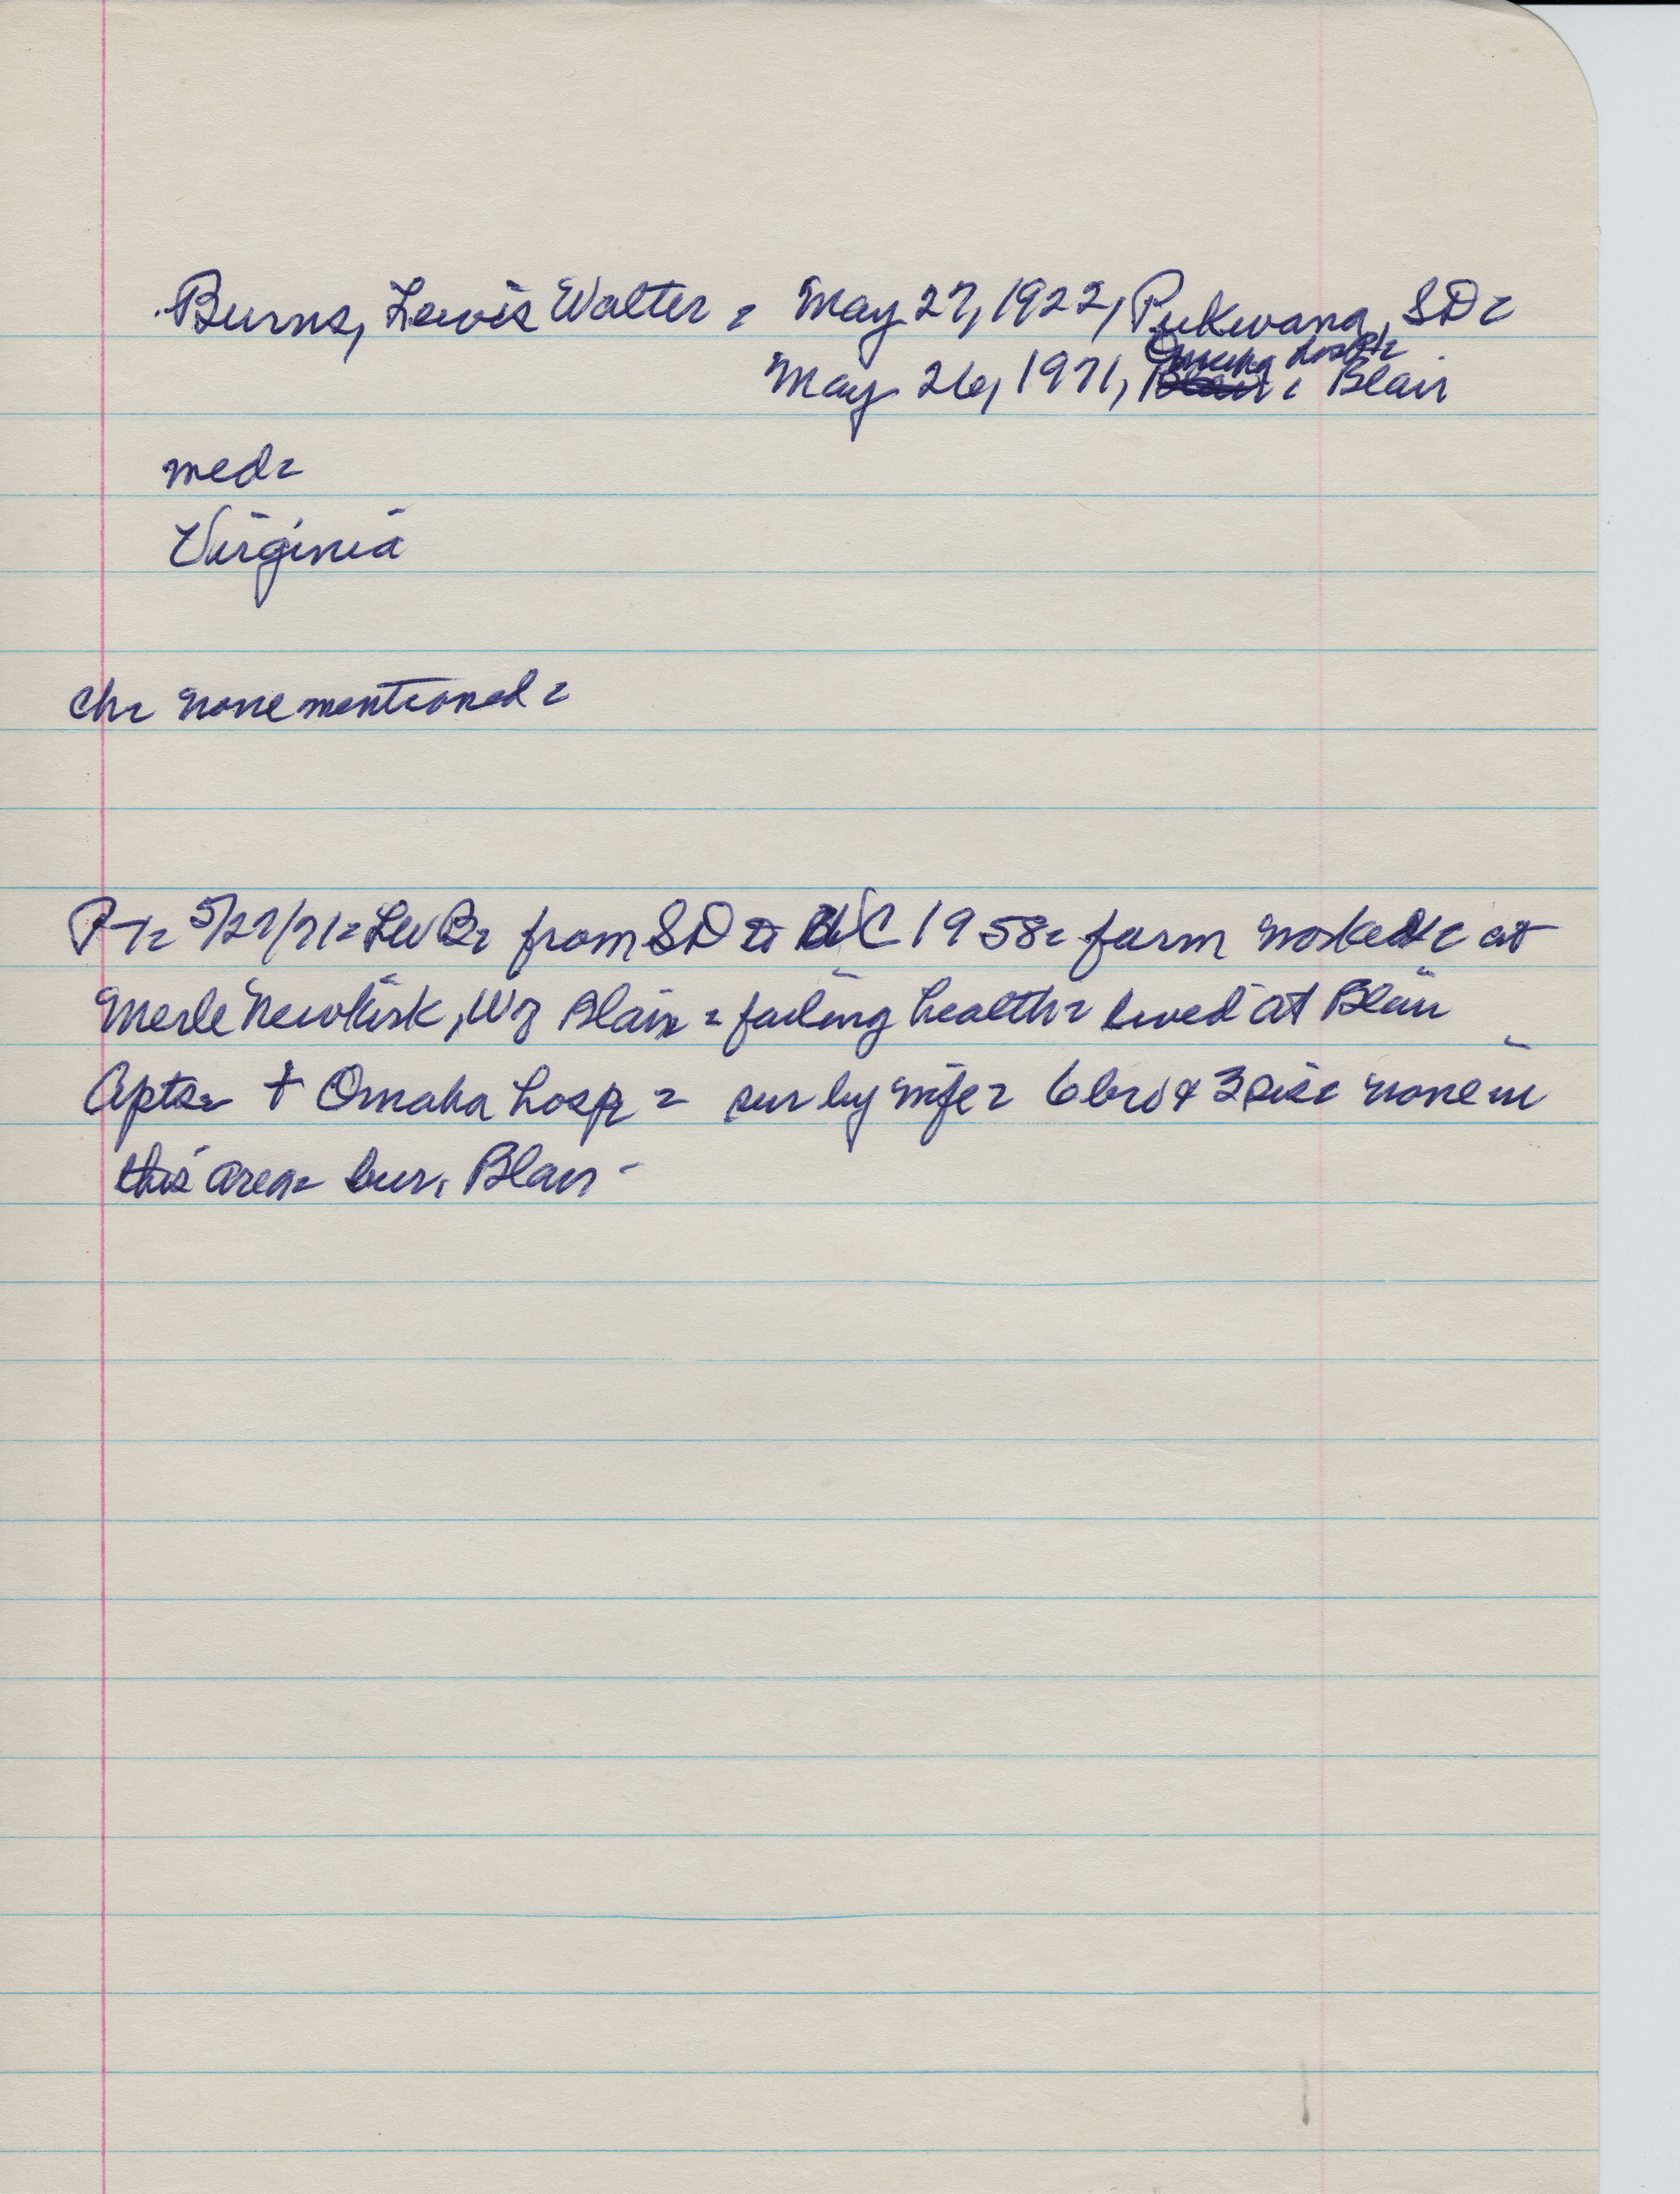 Burns, Lewis Walter = May 27, 1922, Pukwana, SD=
Omaha hosp=
May 26, 1971, Blair = Blair
med=
Virginia
Ch= none mentioned=
PT= 5/27/71= LWB= from SD to WC 1958= farm worked= at
Merle Newkirk, W of Blair = failing health= lived at Blair
Apts= + Omaha hosp = sur by wife= 6 bro & 3 sis= none in
this area= bur. Blair-